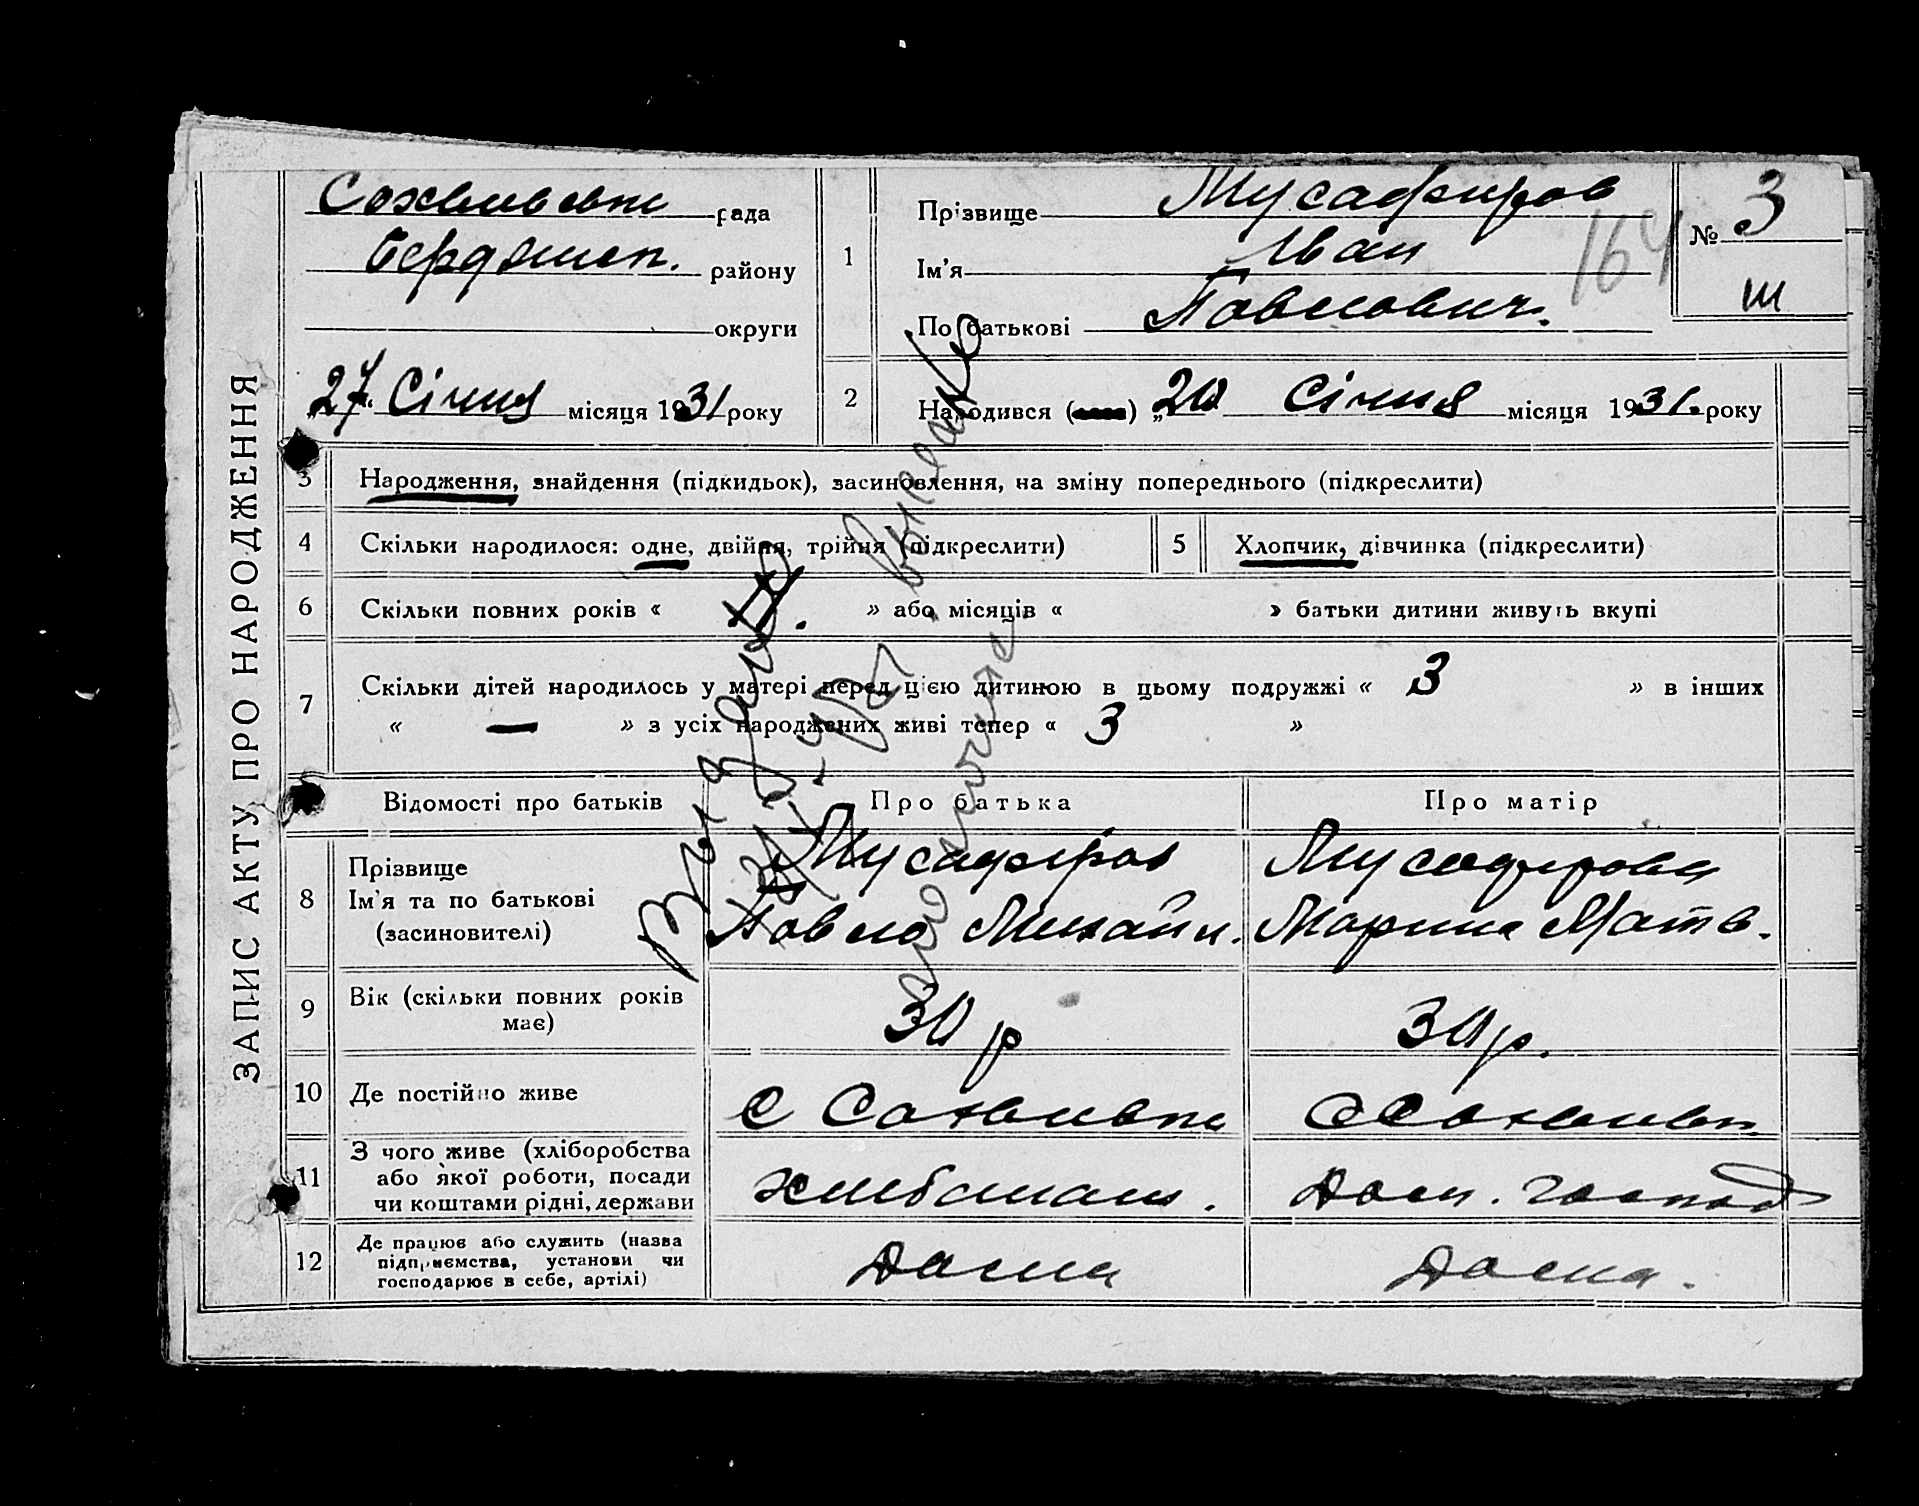 ЗАПИС АКТУ ПРО НАРОДЖЕННЯ
рада
району
округи
„27“ Січня місяця 1931 року
1
Прізвище Мусафиров
Ім'я Іван
По батькові Павлович.
№ 3
ш
164
2
Народився „20 Січня місяця 1931. року
3
Народження, знайдення (підкидьок), засиновлення, на зміну попереднього (підкреслити)
4
Скільки народилося: одне, двійня, трійня (підкреслити)
5
Хлопчик, дівчинка (підкреслити)
6
Скільки повних років « » або місяців « » батьки дитини живуть вкупі
7
Скільки дітей народилось у матері перед цією дитиною в цьому подружжі « 3 » в інших
« — » з усіх народжених живі тепер « 3 »
Відомості про батьків
Про батька
Про матір
8
Прізвище
Ім'я та по батькові
(засиновителі)
Мусафиров
Павло Михайл.
Мусафирова
Марина Матв.
9
Вік (скільки повних років
має)
30 р
30 р.
10
Де постійно живе
с
11
З чого живе (хліборобства
або якої роботи, посади
чи коштами рідні, держави
Дом. господ
12
Де працює або служить (назва
підприємства, установи чи
господарює в себе, артілі)
Дома
Дома.